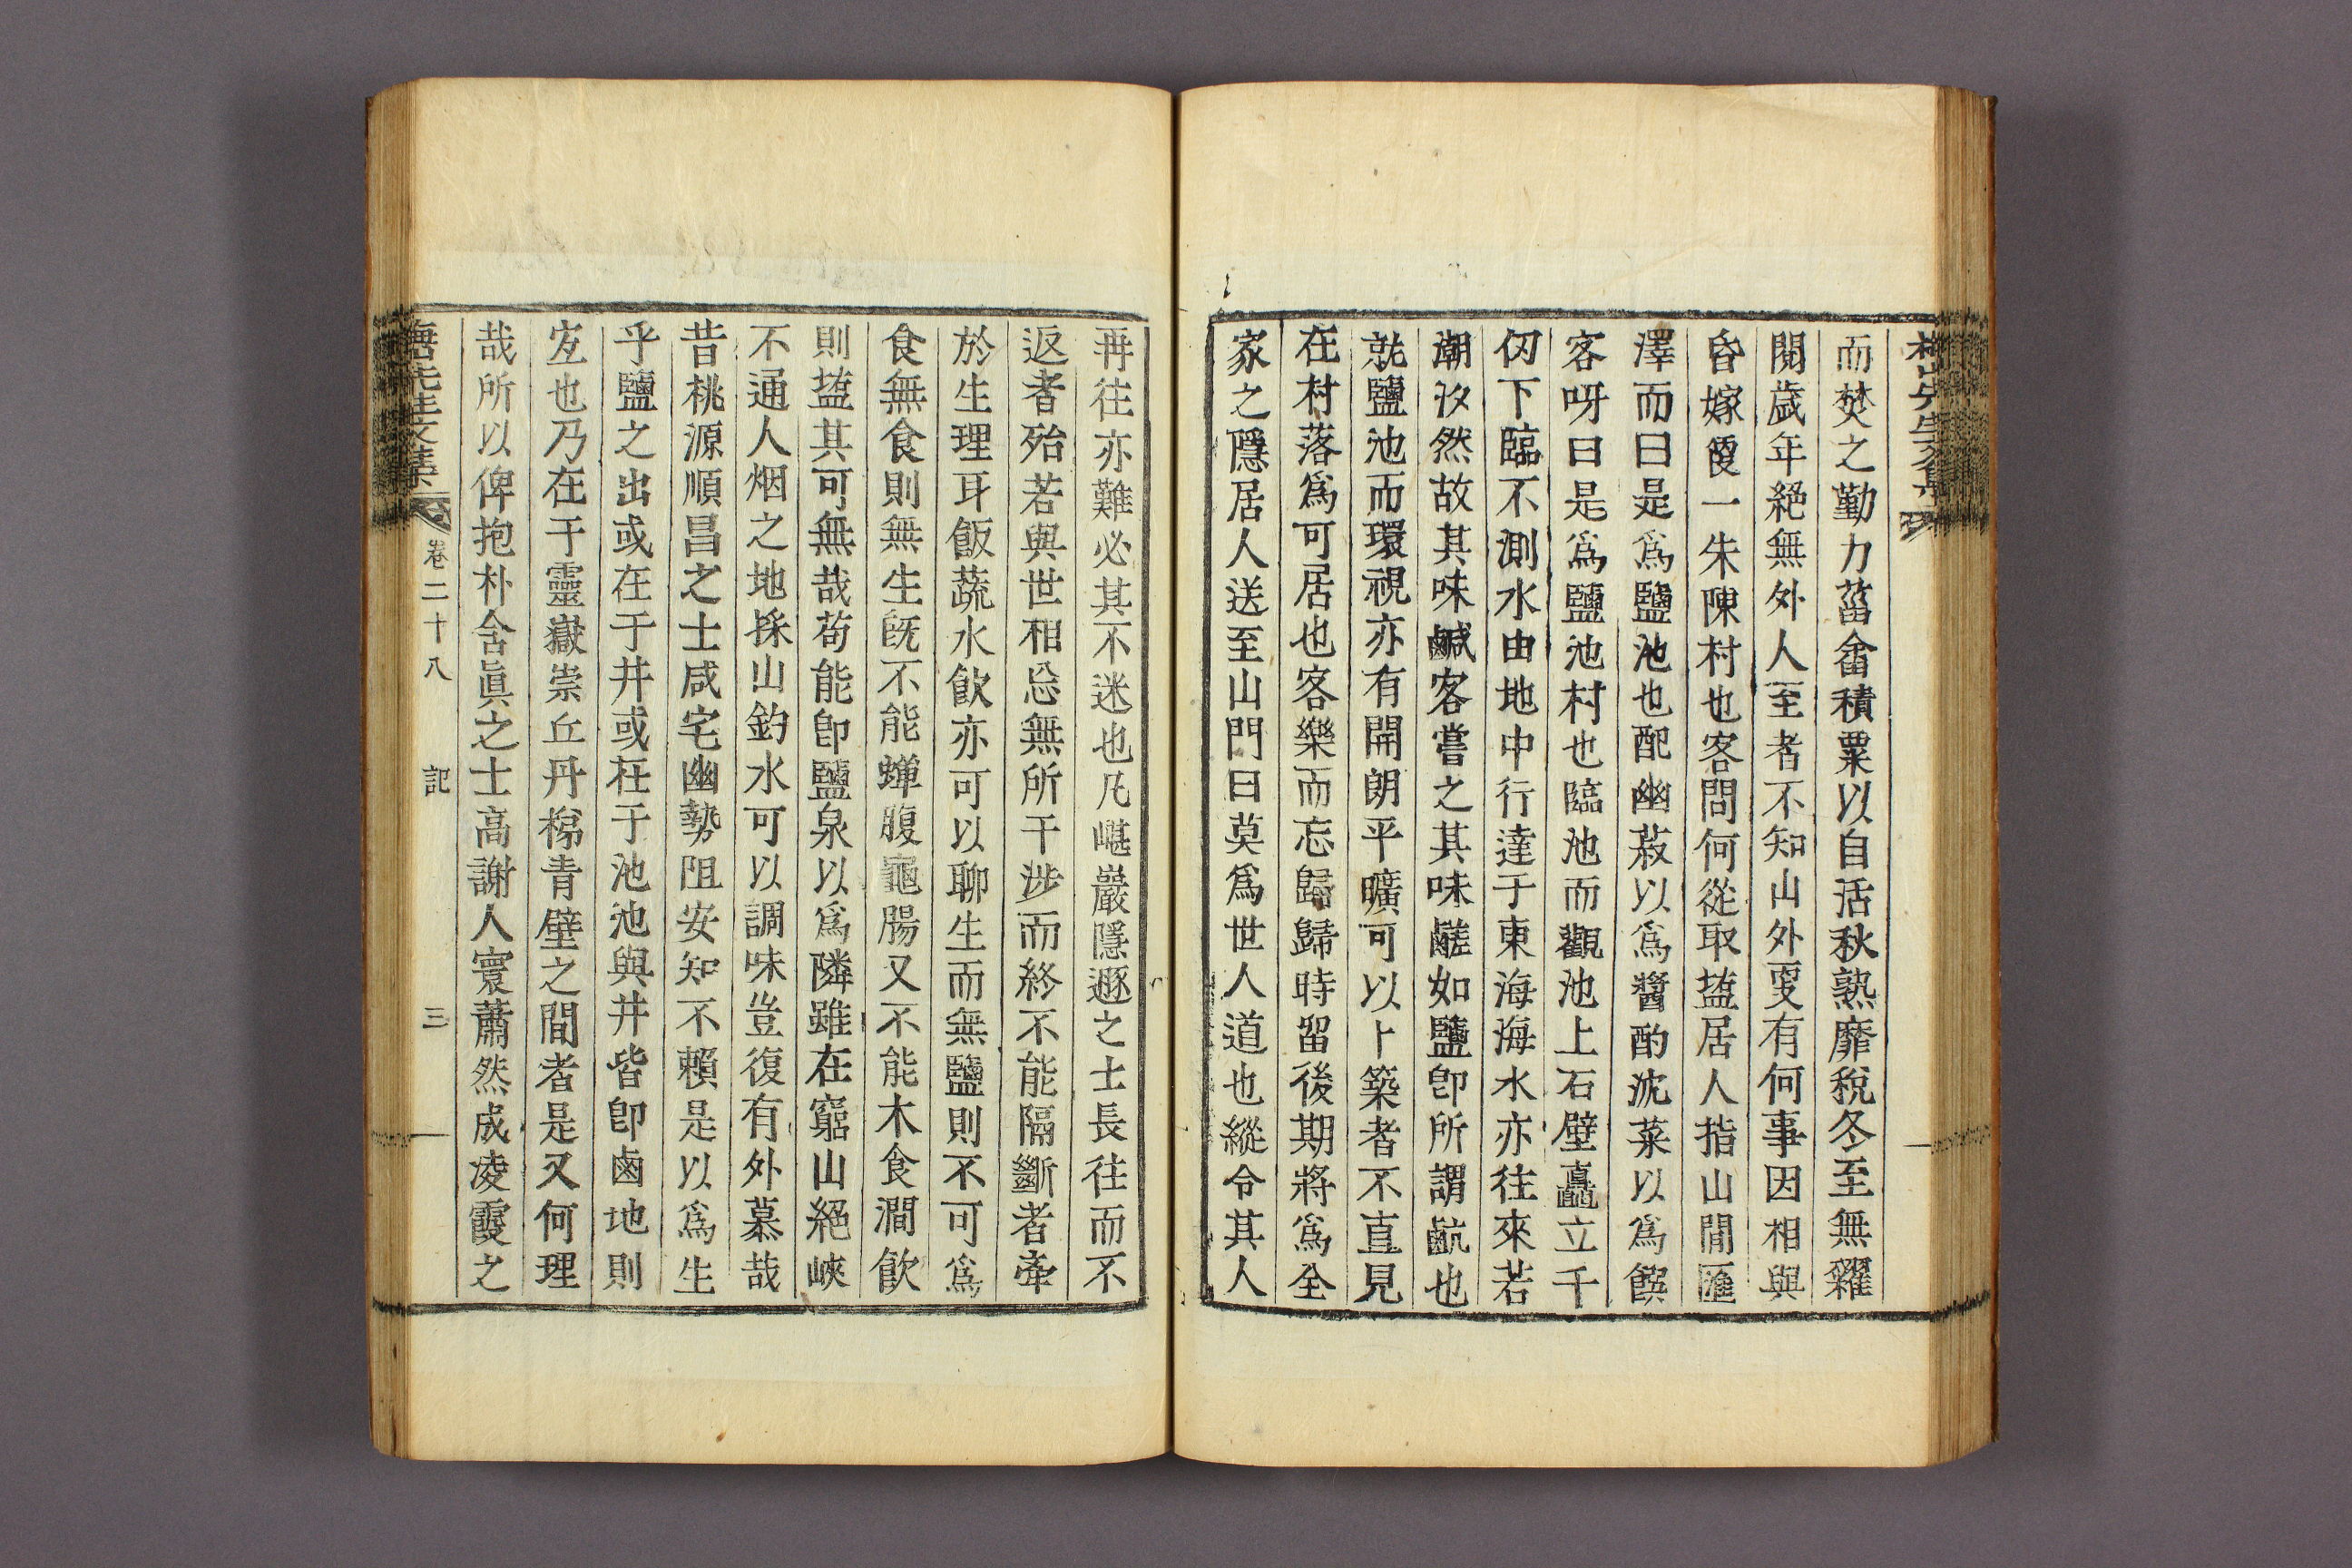 梅山先生文集
而焚之勤力菑畬積粟以自活秋熟靡稅冬至無糴
閱歲年絕無外人至者不知山外更有何事因相與
昏嫁便一朱陳村也客問何從取塩居人指山間匯
澤而曰是爲鹽池也配幽菽以爲醬酌沈菜以爲饌
客呀曰是爲鹽池村也臨池而觀池上石壁矗立千
仞下臨不測水由地中行達于東海海水亦往來若
潮汐然故其味鹹客嘗之其味鹺如鹽卽所謂䴚也
就鹽池而環視亦有開朗平曠可以卜築者不直見
在村落爲可居也客樂而忘歸歸時留後期將爲全
家之隱居人送至山門曰莫爲世人道也縱令其人
再往亦難必其不迷也凡嵁巖隱遯之士長往而不
返者殆若與世相忘無所干涉而終不能隔斷者牽
於生理耳飯蔬水飮亦可以聊生而無鹽則不可爲
食無食則無生旣不能蟬腹龜腸又不能木食澗飮
則塩其可無哉苟能卽鹽泉以爲隣雖在窮山絕峽
不通人烟之地採山釣水可以調味豈復有外慕哉
昔桃源順昌之士咸宅幽勢阻安知不賴是以爲生
乎鹽之出或在于井或在于池池與井皆卽鹵地則
宐也乃在于靈嶽崇丘丹梯青壁之間者是又何理
哉所以俾抱朴含眞之士高謝人寰蕭然成凌霞之
先生文集 卷二十八 記 三